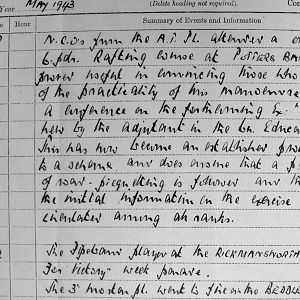 MAY 1943
Year
(Delete heading not required).
Hour
Summary of Events and Information
N.C.O's from the A.T. Pl. attended a
6 pdr. Rafting course at POTTERS BA
proved useful in convincing those who
of the practicability of this manoeuvre
A conference on the forthcoming Ex.
held by the adjutant in the Bn. Educa
This has now become an established
to a scheme and does ensure that a
of war - is followed and
the initial information in the exercise
circulated among all ranks.
The Pipes and played at the RICKMANSWORTH
For Victory" week parade.
The 3" mortar pl. went to fire on the BEDDL